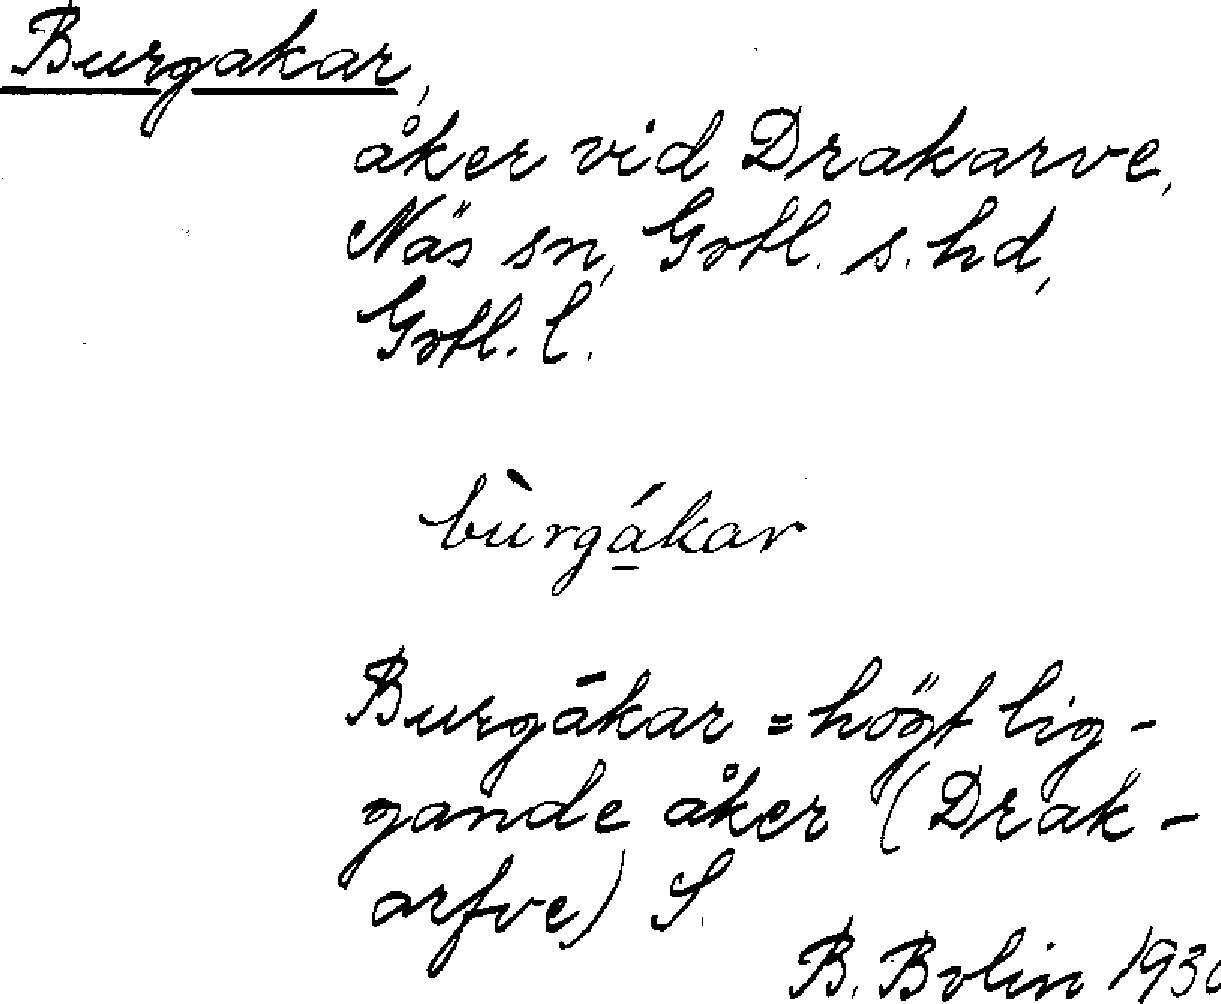 Burgakar,
åker vid Drakarve,
Näs sn, Gotl. s. hd,
Gotl. l.
bùrgá̱kar
Burgākar = högt lig-
gande åker (Drak-
arfve) S.
B. Bolin 1930